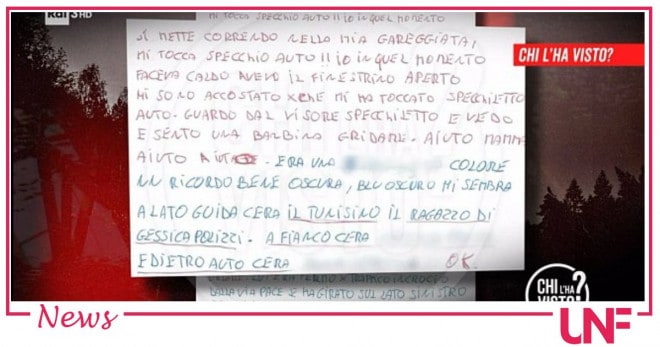 Rai 3HD
MI TOCCA SPECCHIO AUTO II IO IN QUEL MOMENTO
SI METTE CORRENDO NELLA MIA GAREGGIATA,
MI TOCCA SPECCHIO AUTO II IO IN QUEL MOMENTO
FACEVA CALDO AVEVO IL FINESTRINO APERTO
MI SONO ACCOSTATO XCHE MI HA TOCCATO SPECCHIETTO
AUTO. GUARDO DAL VISORE SPECCHIETTO E VEDO
E SENTO UNA BAMBINA GRIDARE. AIUTO MAMMA
AIUTO AIUTO. ERA UNA COLORE
NN RICORDO BENE OSCURA, BLU OSCURO MI SEMBRA
A LATO GUIDA CERA IL TUNISINO IL RAGAZZO DI
GESSICA PULIZZI. A FIANCO CERA
E DIETRO AUTO CERA OK.
DALLA VIA PACE E HA GIRATO SUL LATO SINISTRO
CHI L'HA VISTO?
CHI L'HA VISTO?
News
UNF